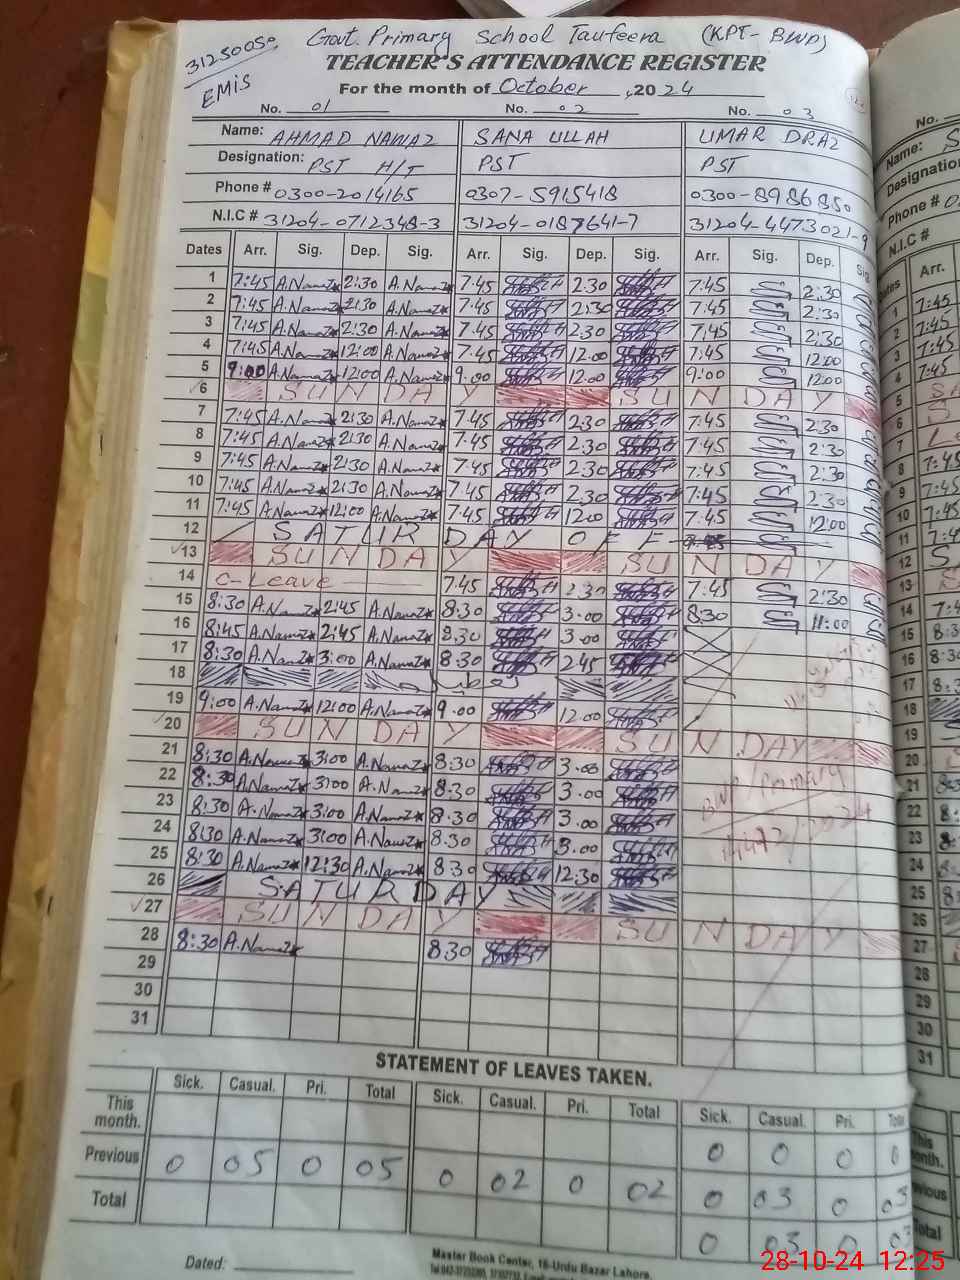 Govt. Primary School Taufeera (KPT-BWP)
31250050
EMIS
TEACHER'S ATTENDANCE REGISTER
For the month of October, 2024
No. 01 No. 02 No. 03
Name: AHMAD NAWAZ SANA ULLAH UMAR DRAZ
Designation: PST H/T PST PST
Phone # 0300-2014165 0307-5915418 0300-8986850
N.I.C # 31204-0712348-3 31204-0187641-7 31204-4473021-9
Dates Arr. Sig. Dep. Sig. Arr. Sig. Dep. Sig. Arr. Sig. Dep. Sig
1 7:45 A.Nawaz 2:30 A.Nawaz 7.45 2.30 7:45 2:30
2 7:45 A.Nawaz 2:30 A.Nawaz 7.45 2:30 7:45 2:30
3 7:45 A.Nawaz 2:30 A.Nawaz 7.45 2.30 7:45 2:30
4 7:45 A.Nawaz 12:00 A.Nawaz 7.45 12.00 7:45 12:00
5 9:00 A.Nawaz 12:00 A.Nawaz 9.00 12.00 9:00 12:00
6 SUNDAY SUNDAY
7 7:45 A.Nawaz 2:30 A.Nawaz 7.45 2.30 7:45 2:30
8 7:45 A.Nawaz 2:30 A.Nawaz 7.45 2.30 7:45 2:30
9 7:45 A.Nawaz 2:30 A.Nawaz 7.45 2.30 7:45 2:30
10 7:45 A.Nawaz 2:30 A.Nawaz 7.45 2.30 7:45 2:30
11 7:45 A.Nawaz 12:00 A.Nawaz 7.45 12.00 7:45 12:00
12 SATURDAY OFF
13 SUNDAY SUNDAY
14 C-Leave 7.45 2.30 7:45 2:30
15 8:30 A.Nawaz 2:45 A.Nawaz 8:30 3.00 8:30 11:00
16 8:45 A.Nawaz 2:45 A.Nawaz 8.30 3.00
17 8:30 A.Nawaz 3:00 A.Nawaz 8.30 2.45
18
19 9:00 A.Nawaz 12:00 A.Nawaz 9.00 12.00
20 SUNDAY SUNDAY
21 8:30 A.Nawaz 3:00 A.Nawaz 8:30 3.00
22 8:30 A.Nawaz 3:00 A.Nawaz 8.30 3.00
BWP/Primary
23 8:30 A.Nawaz 3:00 A.Nawaz 8.30 3.00
24 8:30 A.Nawaz 3:00 A.Nawaz 8.30 3.00
25 8:30 A.Nawaz 12:30 A.Nawaz 8.30 12.30
26 SATURDAY
27 SUNDAY SUNDAY
28 8:30 A.Nawaz 8.30
29
30
31
STATEMENT OF LEAVES TAKEN.
Sick. Casual. Pri. Total Sick. Casual. Pri. Total Sick. Casual. Pri. Total
This month. 0 0 0 0
Previous 0 05 0 05 0 02 0 02 0 03 0 03
Total 0 03 0 03
Dated:
Master Book Center, 16-Urdu Bazar Lahore.
28-10-24 12:25
No.
Name: S
Designation
Phone # 0
N.I.C #
Arr.
1 7:45
2 7:45
3 7:45
4 7:45
5 SA
6 S
7
8 7:45
9 7:45
10 7:45
11 7:4
12 S
13 S
14 7:4
15 8:3
16 8:30
17 8:3
18
19
20
21 8:3
22 8:
23 8:
24 8:
25
26
27
28
29
30
31